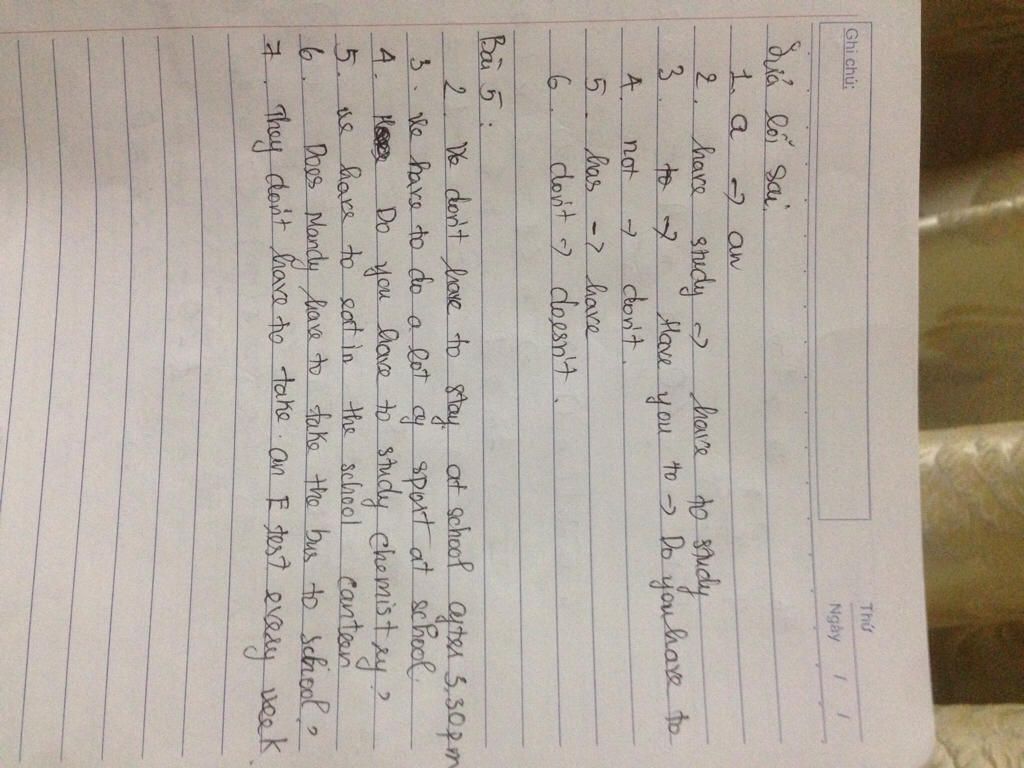 Ghi chú:
Thứ
Ngày / /
Sửa lỗi sai.
1. a -> an
2. have study -> have to study
3. Have you to -> Do you have to
4. not -> don't.
5. has -> have
6. don't -> doesn't.
Bài 5:
2. We don't have to stay at school after 3.30pm
3. We have to do a lot of sport at school.
4. Do you have to study chemistry?
5. We have to eat in the school canteen
6. Does Mandy have to take the bus to school?
7. They don't have to take an E test every week.